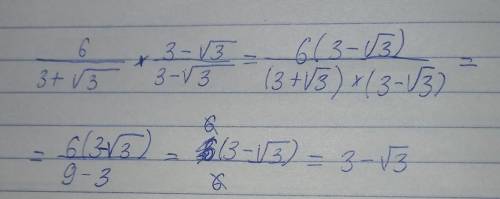 6/(3+√3) × (3-√3)/(3-√3) = 6(3-√3)/((3+√3)×(3-√3)) =
= 6(3-√3)/(9-3) = 6(3-√3)/6 = 3-√3